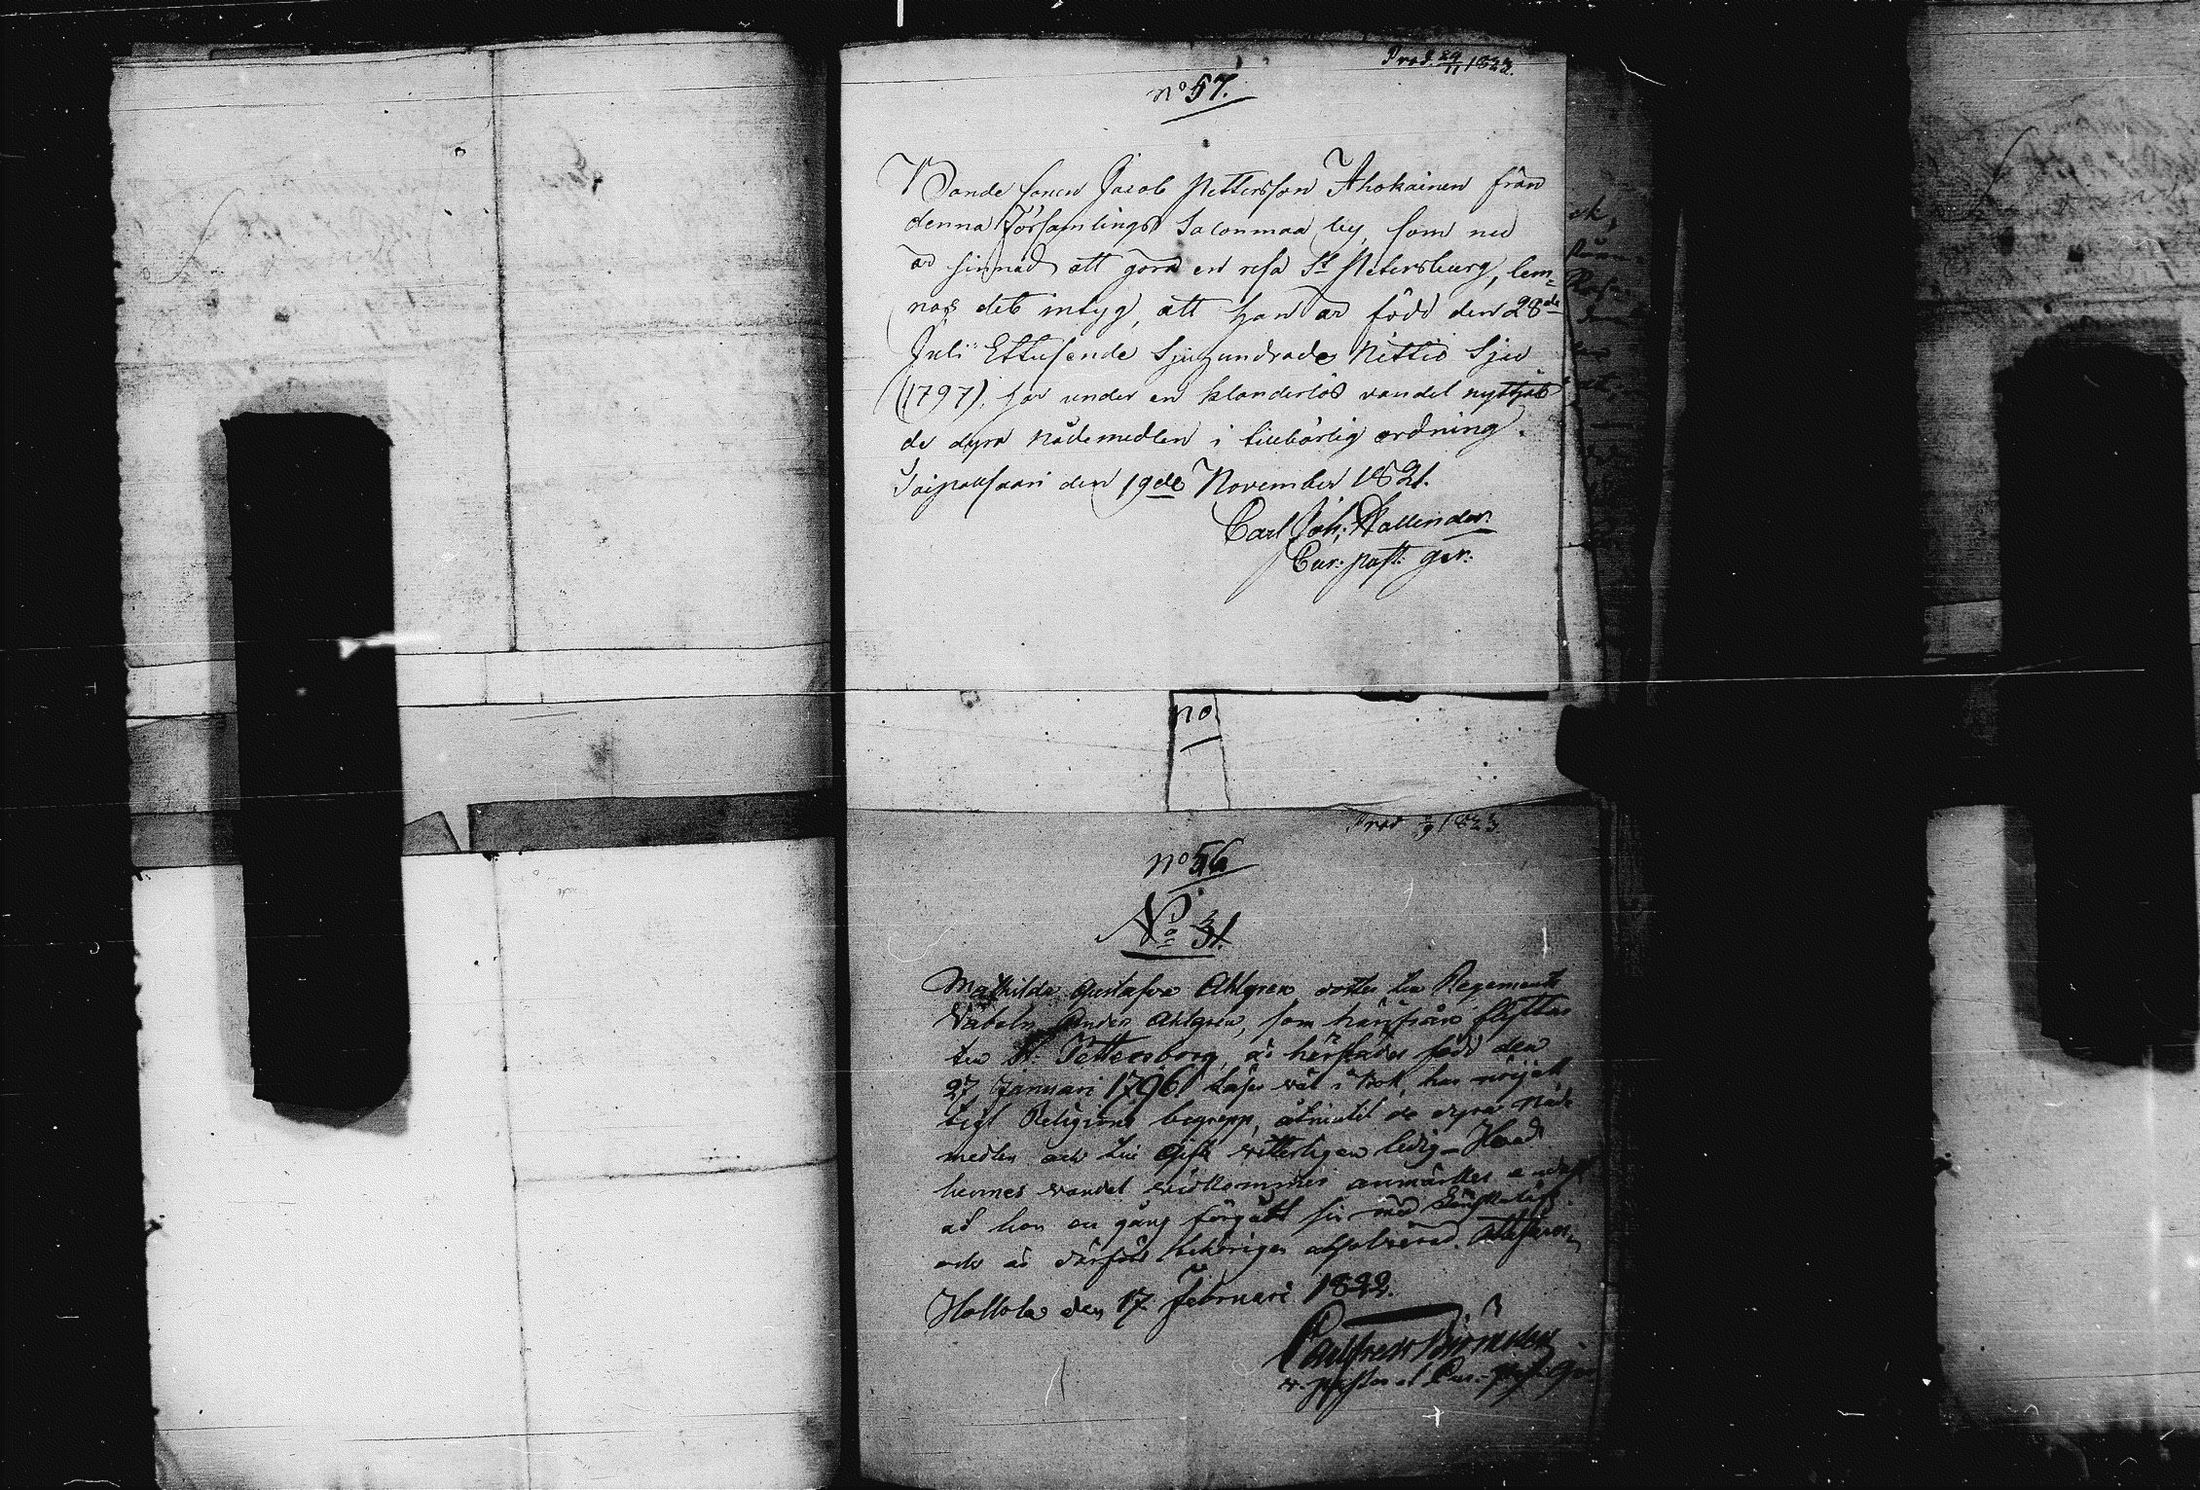 Prod. 29/11 1822.
no 57.
Bonde sonen Jacob Pettersson Ahokainen från
denna Församlings Salonmaa by, som nu
är sinnad att göra en resa St Petersburg, lem-
nas det intyg, att han är född den 28de
Juli Ettusende Sjuhundrade Nittio Sju
(1797), har under en klanderlös vandel nyttjat
de dyra nådemedlen i tillbörlig ordning.
Taipalsaari den 19de November 1821.
Carl Joh: Wallender.
Cur: past: ger:
no
Prod 1823
no 56
No 31.
Mathilda Gustafva Ahlgren dotter till Regements
Anders Ahlgren, som härifrån flyttar
till St: Pettersborg, är härstädes född den
27 Januari 1796 läser väl i Bok, har nöjak
tigt Religions begrepp, åtniutit de dyra Nåde
medlen och till Gifte vitterligen ledig – Hvad
hennes vandel vidkommer anmärkes endast
at hon en gång förgått sig med
och är därföre behörigen absolverad. Attesteras
Hollola den 17 Februari 1822.
v. pastor et Cur. past. Ger